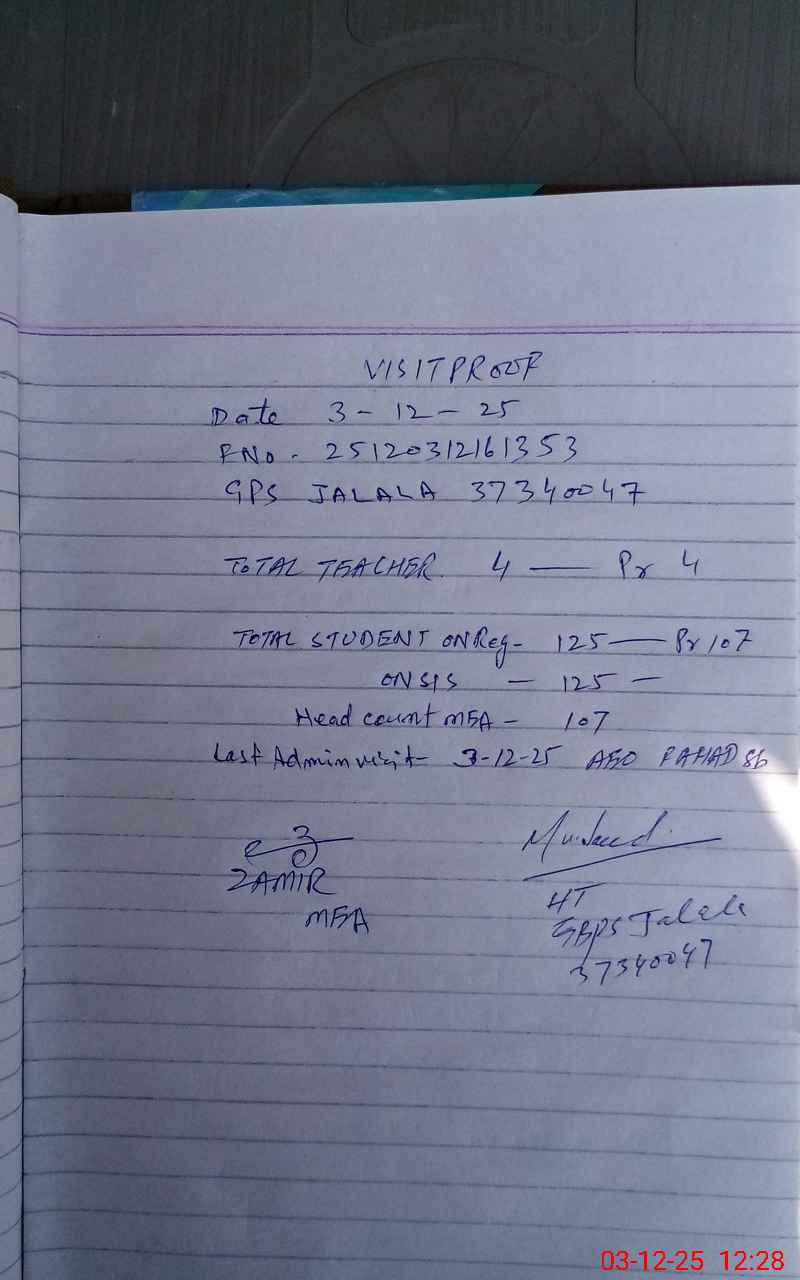 VISIT PROOF
Date 3 - 12 - 25
FNo. 2512031216 1353
GPS JALALA 37340047
TOTAL TEACHER. 4 — Pr 4
TOTAL STUDENT ON Reg - 125 — Pr 107
ON SIS - 125 -
Head count MEA - 107
Last Admin visit - 3-12-25 AEO FAHAD Sb
ZAMIR
MEA
HT
GBPS Jalala
37340047
03-12-25 12:28